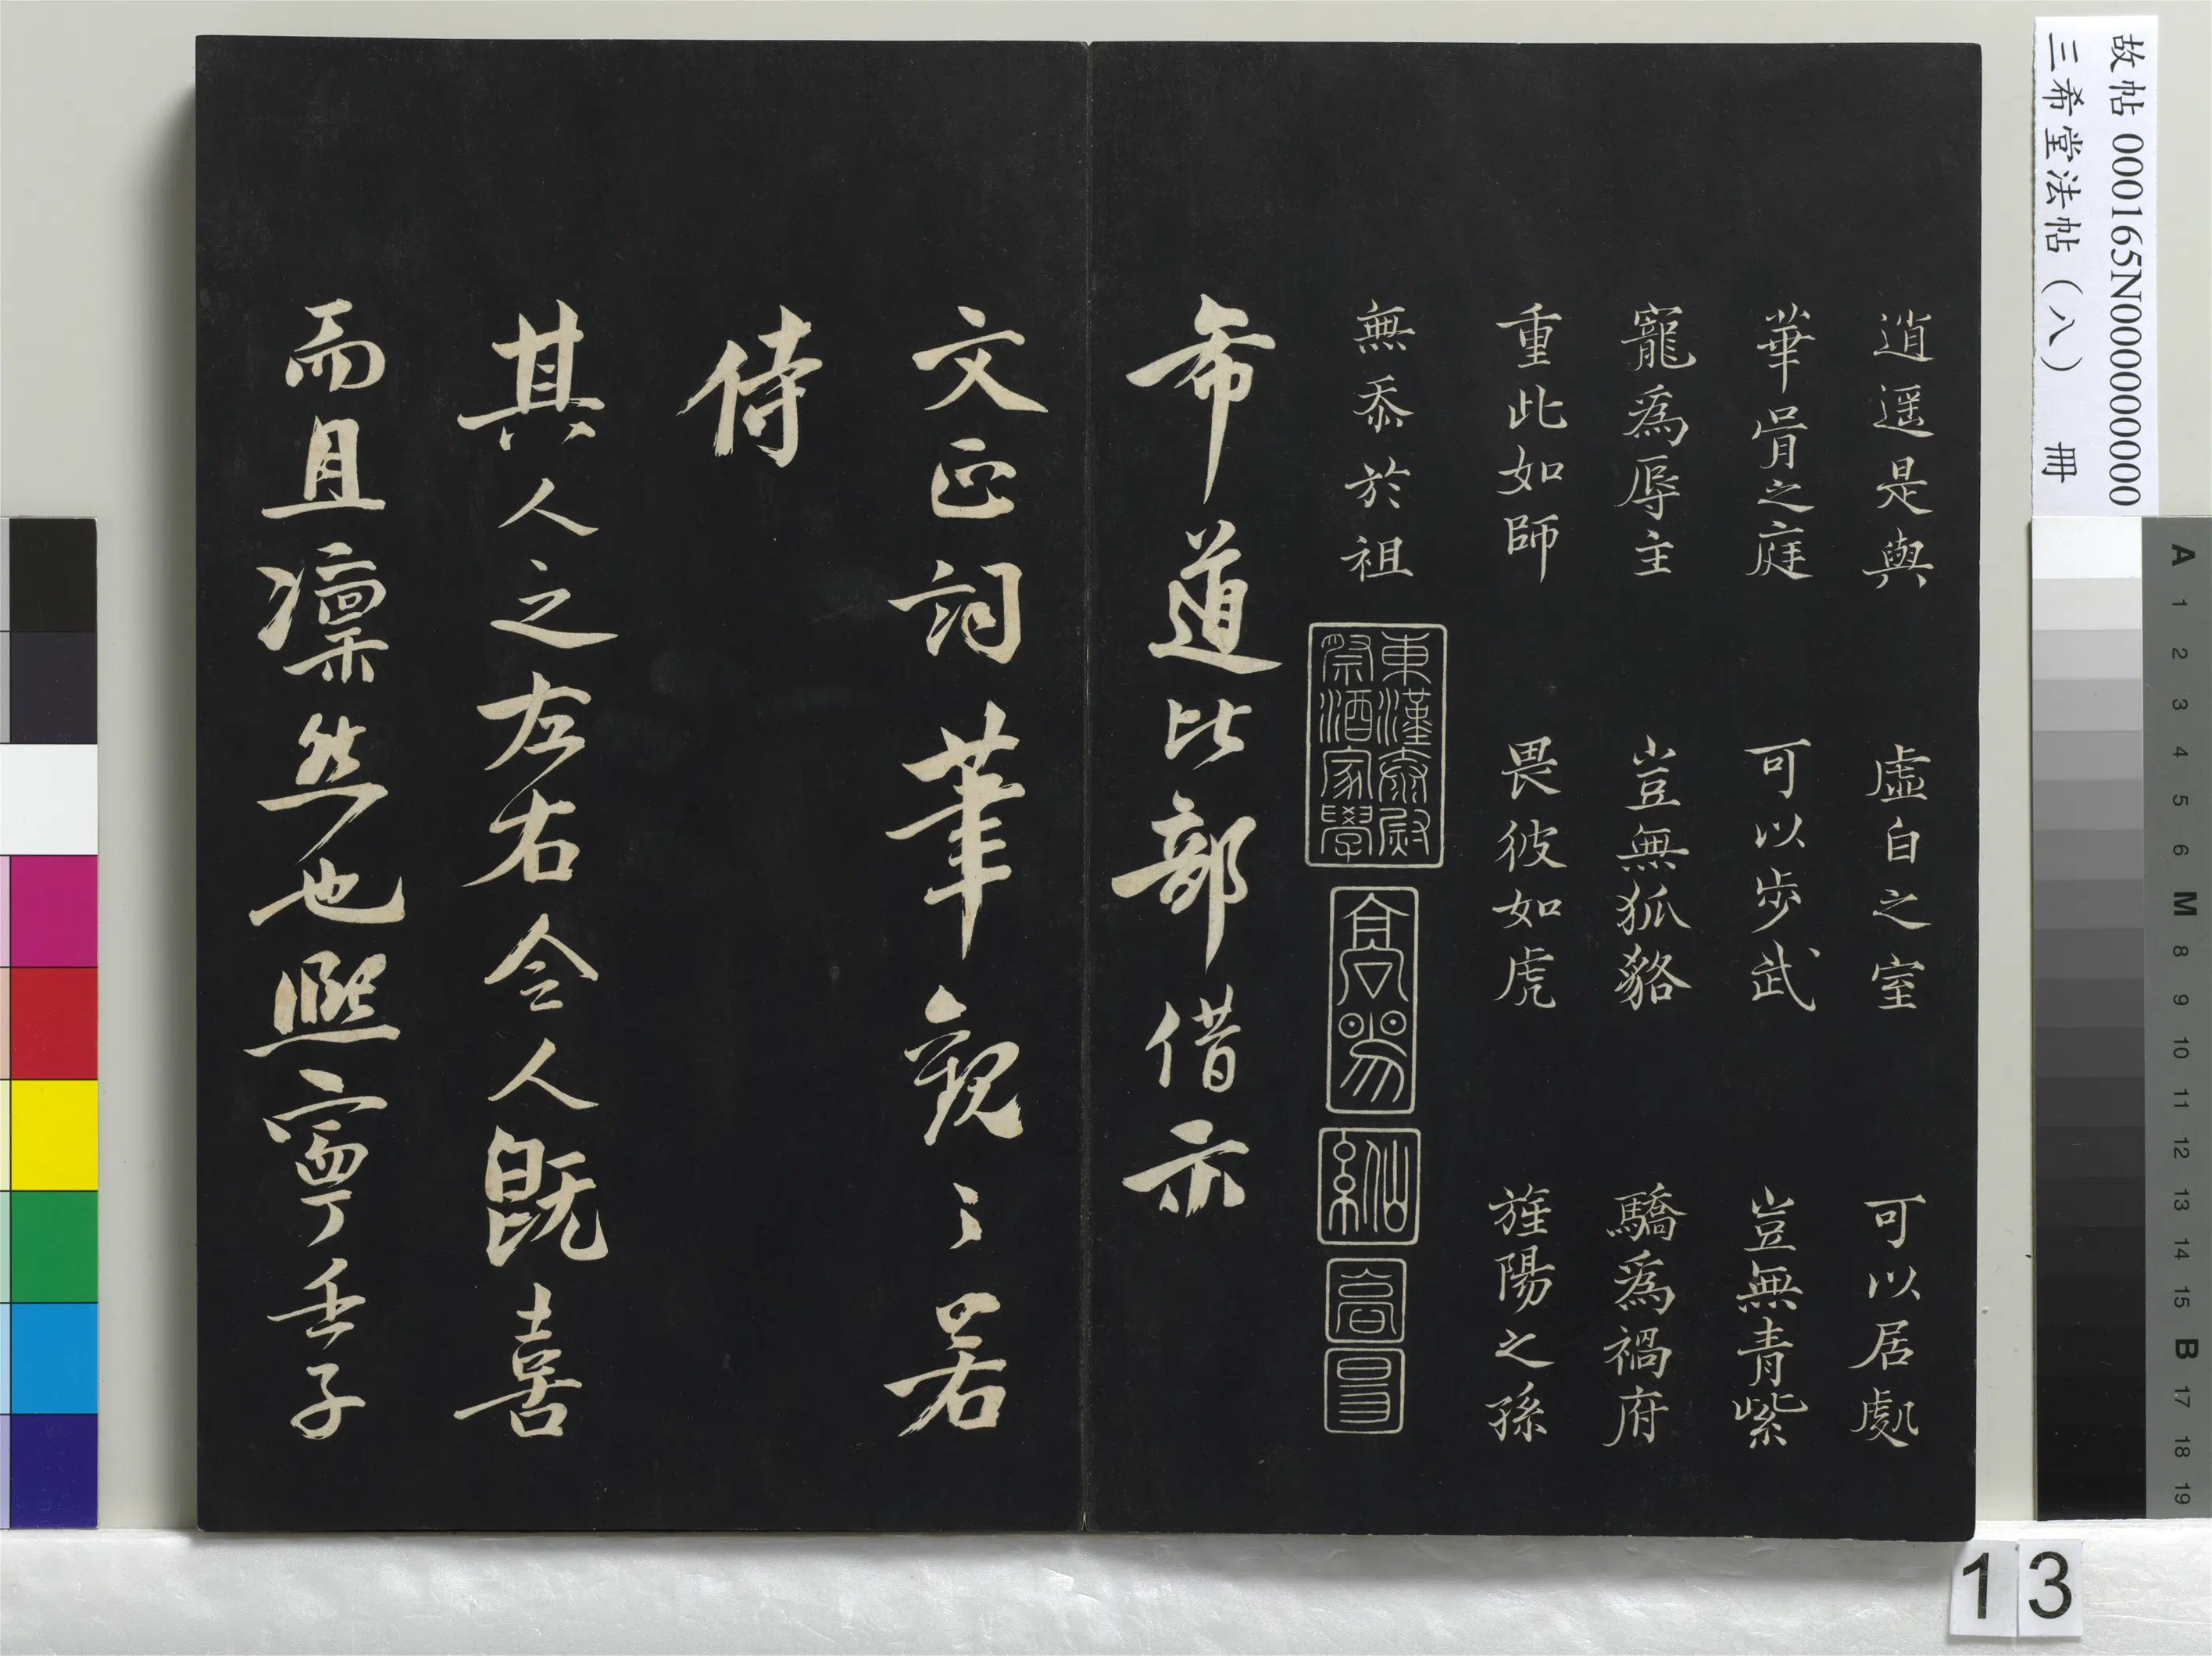 故帖 000165N000000000
三希堂法帖（八） 冊
逍遥是與 虛白之室 可以居處
華胥之庭 可以步武 豈無青紫
寵為辱主 豈無狐貉 驕為禍府
重此如師 畏彼如虎 旌陽之孫
無忝於祖
東漢泰尉
祭酒家學
高陽
仙系
希道比部借示
文正詞筆觀之若
侍
其人之左右令人既喜
而且凜然也熙寧壬子
A 1 2 3 4 5 6 M 8 9 10 11 12 13 14 15 B 17 18 19
13